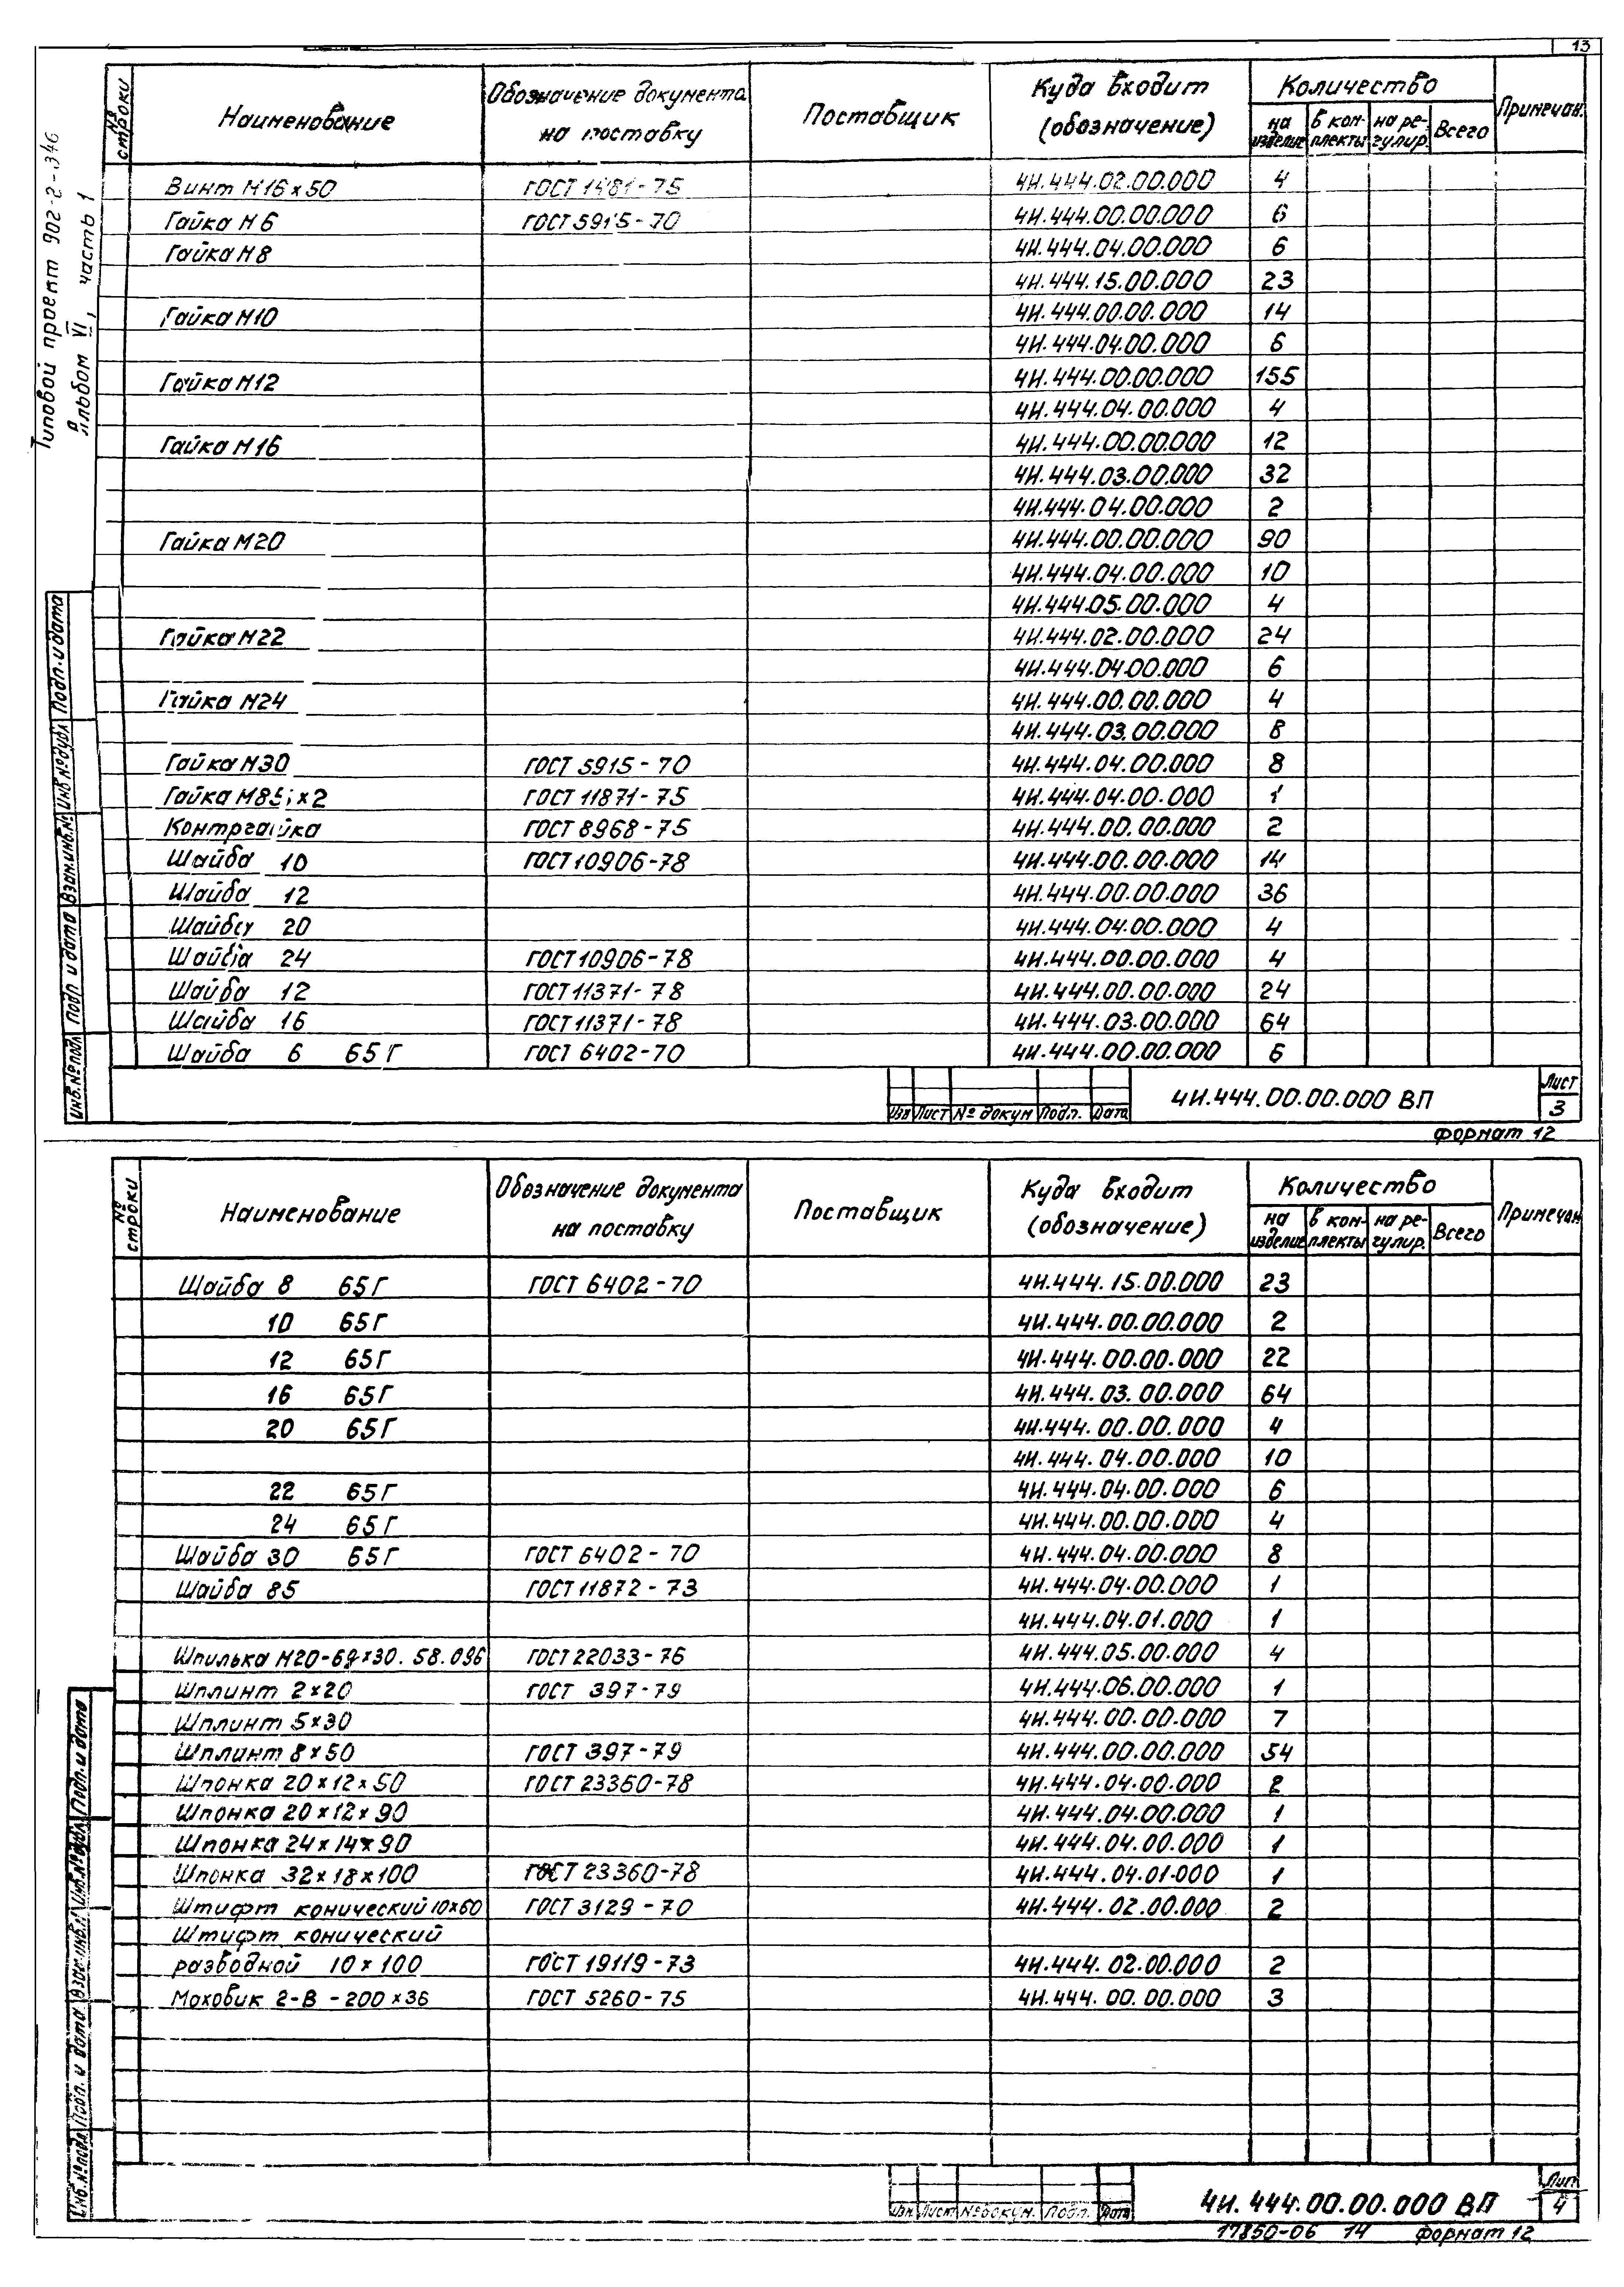 13
Типовой проект 902-2-346
Альбом VI, часть 1
№ строки | Наименование | Обозначение документа на поставку | Поставщик | Куда входит (обозначение) | Количество | Примечан.
на изделие | в комплекты | на регулир. | Всего
Винт М16×50 ГОСТ 1481-75 4И.444.02.00.000 4
Гайка М6 ГОСТ 5915-70 4И.444.00.00.000 6
Гайка М8 4И.444.04.00.000 6
4И.444.15.00.000 23
Гайка М10 4И.444.00.00.000 14
4И.444.04.00.000 6
Гайка М12 4И.444.00.00.000 155
4И.444.04.00.000 4
Гайка М16 4И.444.00.00.000 12
4И.444.03.00.000 32
4И.444.04.00.000 2
Гайка М20 4И.444.00.00.000 90
4И.444.04.00.000 10
4И.444.05.00.000 4
Гайка М22 4И.444.02.00.000 24
4И.444.04.00.000 6
Гайка М24 4И.444.00.00.000 4
4И.444.03.00.000 8
Гайка М30 ГОСТ 5915-70 4И.444.04.00.000 8
Гайка М85×2 ГОСТ 11871-75 4И.444.04.00.000 1
Контргайка ГОСТ 8968-75 4И.444.00.00.000 2
Шайба 10 ГОСТ 10906-78 4И.444.00.00.000 14
Шайба 12 4И.444.00.00.000 36
Шайба 20 4И.444.04.00.000 4
Шайба 24 ГОСТ 10906-78 4И.444.00.00.000 4
Шайба 12 ГОСТ 11371-78 4И.444.00.00.000 24
Шайба 16 ГОСТ 11371-78 4И.444.03.00.000 64
Шайба 6 65Г ГОСТ 6402-70 4И.444.00.00.000 6
Инв.№ подл. | Подп и дата | Взам.инв.№ | Инв №дубл. | Подп. и дата
Изм Лист № докум Подп. Дата
4И.444.00.00.000 ВП
Лист
3
Формат 12
№ строки | Наименование | Обозначение документа на поставку | Поставщик | Куда входит (обозначение) | Количество | Примечан
на изделие | в комплекты | на регулир. | Всего
Шайба 8 65Г ГОСТ 6402-70 4И.444.15.00.000 23
10 65Г 4И.444.00.00.000 2
12 65Г 4И.444.00.00.000 22
16 65Г 4И.444.03.00.000 64
20 65Г 4И.444.00.00.000 4
4И.444.04.00.000 10
22 65Г 4И.444.04.00.000 6
24 65Г 4И.444.00.00.000 4
Шайба 30 65Г ГОСТ 6402-70 4И.444.04.00.000 8
Шайба 85 ГОСТ 11872-73 4И.444.04.00.000 1
4И.444.04.01.000 1
Шпилька М20-6g×30.58.096 ГОСТ 22033-76 4И.444.05.00.000 4
Шплинт 2×20 ГОСТ 397-79 4И.444.06.00.000 1
Шплинт 5×30 4И.444.00.00.000 7
Шплинт 8×50 ГОСТ 397-79 4И.444.00.00.000 54
Шпонка 20×12×50 ГОСТ 23360-78 4И.444.04.00.000 2
Шпонка 20×12×90 4И.444.04.00.000 1
Шпонка 24×14×90 4И.444.04.00.000 1
Шпонка 32×18×100 ГОСТ 23360-78 4И.444.04.01.000 1
Штифт конический 10×60 ГОСТ 3129-70 4И.444.02.00.000 2
Штифт конический
разводной 10×100 ГОСТ 19119-73 4И.444.02.00.000 2
Маховик 2-В-200×36 ГОСТ 5260-75 4И.444.00.00.000 3
Инв.№ подл. | Подп. и дата | Взам.инв.№ | Инв.№ дубл. | Подп. и дата
Изм. Лист № докум. Подп. Дата
4И.444.00.00.000 ВП
Лист
4
17850-06 14 Формат 12